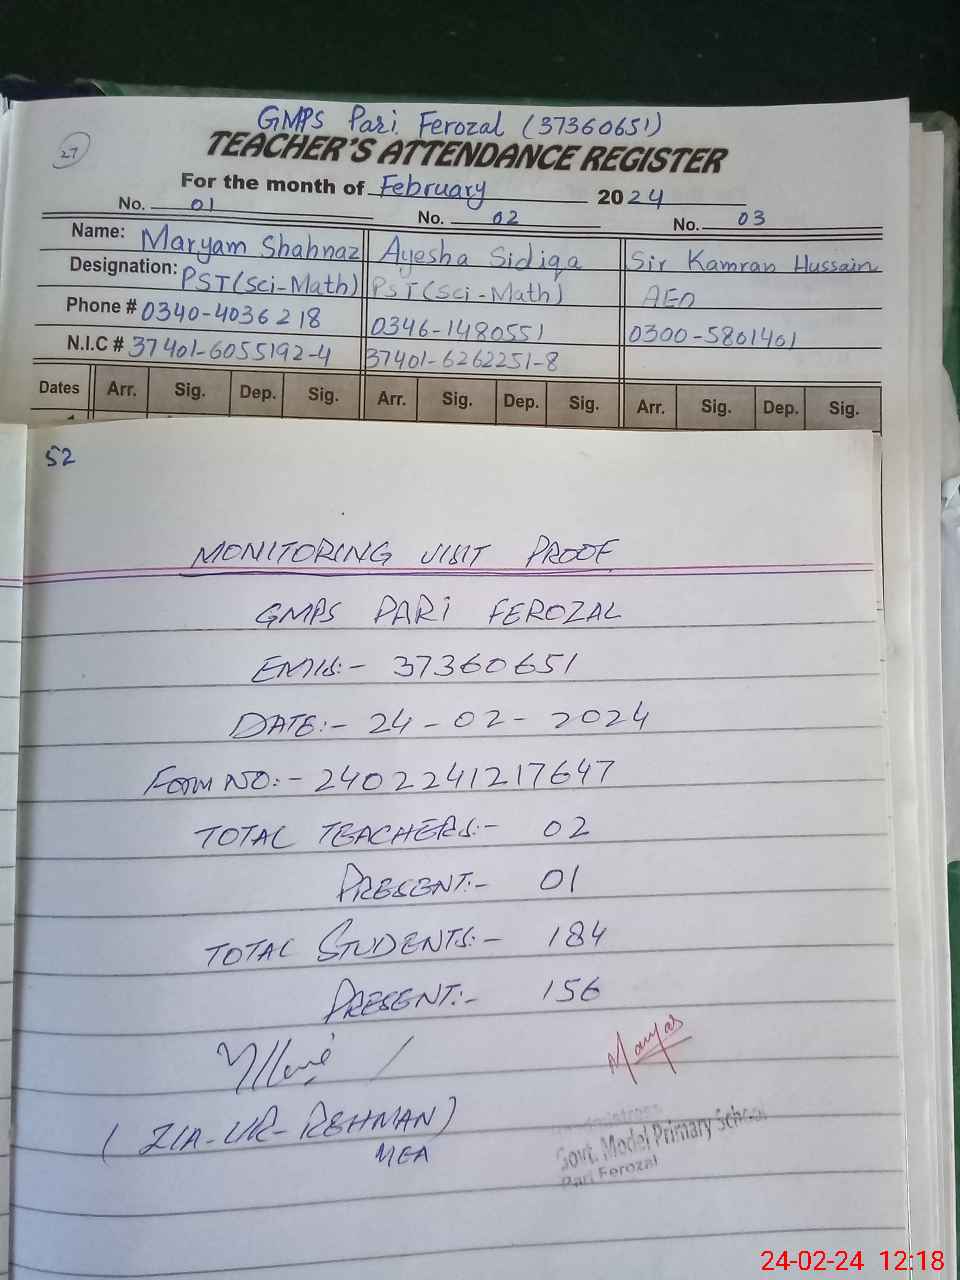 GMPS Pari Ferozal (37360651)
27
TEACHER'S ATTENDANCE REGISTER
For the month of February 2024
No. 01 No. 02 No. 03
Name: Maryam Shahnaz Ayesha Sidiqa Sir Kamran Hussain
Designation: PST(Sci-Math) PST(Sci-Math) AEO
Phone # 0340-4036218 0346-1480551 0300-5801401
N.I.C # 37401-6055192-4 37401-6262251-8
Dates Arr. Sig. Dep. Sig. Arr. Sig. Dep. Sig. Arr. Sig. Dep. Sig.
52
MONITORING VISIT PROOF
GMPS PARI FEROZAL
EMIS:- 37360651
DATE:- 24-02-2024
FORM NO:- 2402241217647
TOTAL TEACHERS:- 02
PRESENT:- 01
TOTAL STUDENTS:- 184
PRESENT:- 156
Maryam
(ZIA-UR-REHMAN)
MEA
Govt. Model Primary School
Pari Ferozal
24-02-24 12:18